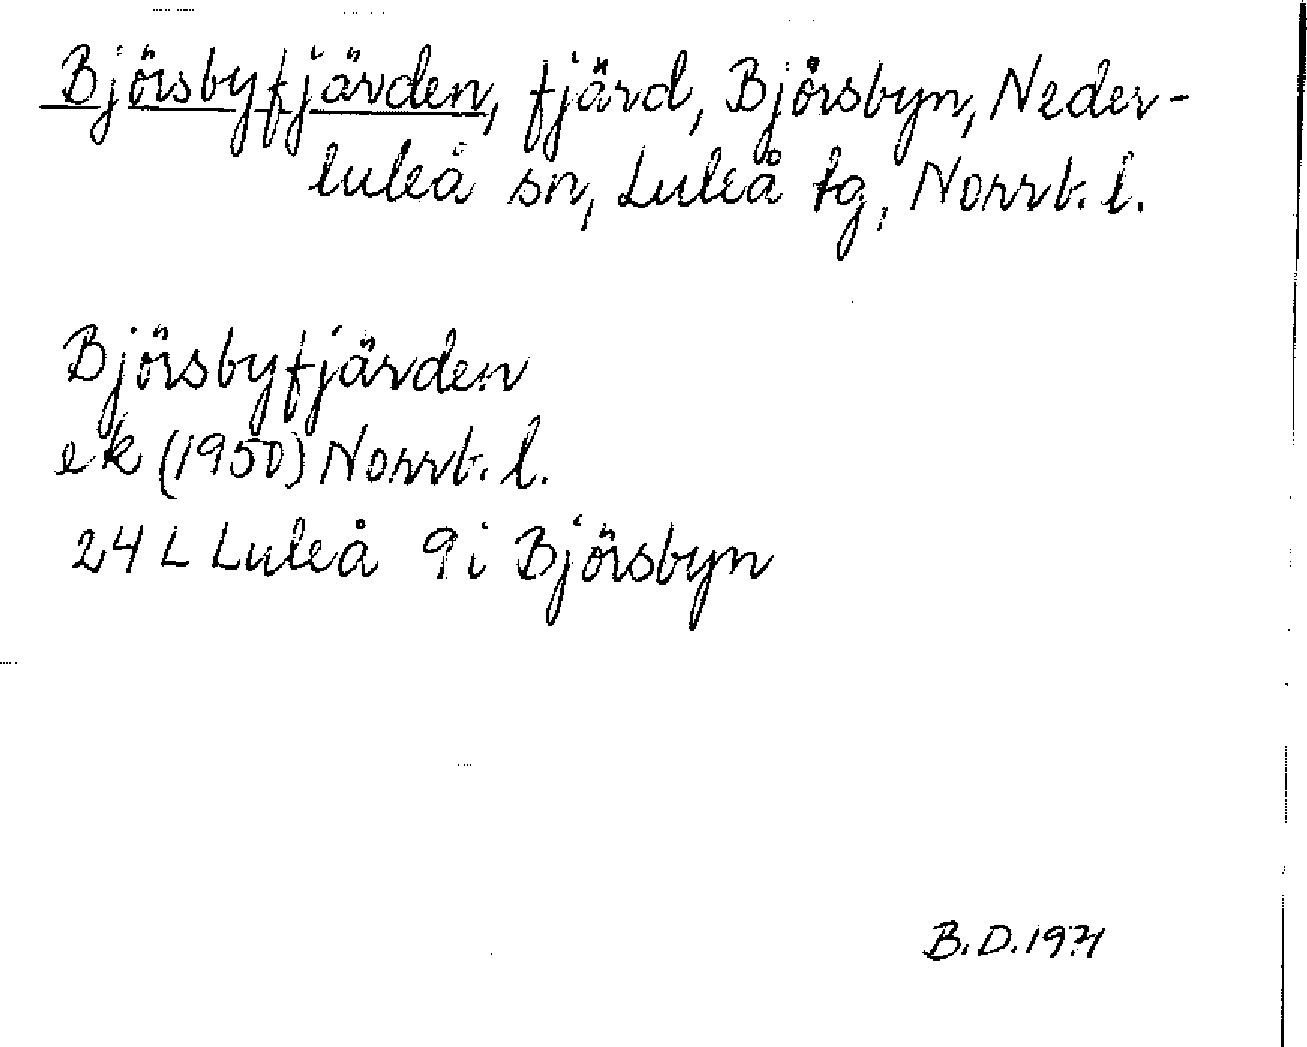 Björsbyfjärden, fjärd, Björsbyn, Neder-
luleå sn, Luleå tg, Norrb. l.
Björsbyfjärden
ek (1950) Norrb. l.
24 L Luleå 9i Björsbyn
B.D. 1971